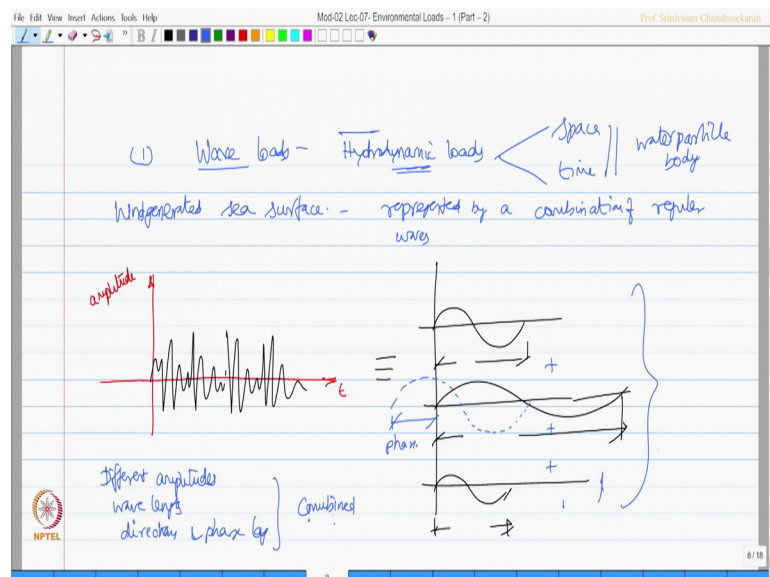 File Edit View Insert Actions Tools Help
Mod-02 Lec-07- Environmental Loads – 1 (Part – 2)
Prof. Srinivasan Chandrasekaran
B I
(1) Wave loads - Hydrodynamic loads
space
time
waterparticle
body
Windgenerated sea surface. - represented by a combination of regular
waves
amplitude
t
≡
+
phase.
+
+
Different amplitudes
wave lengths
directions & phase lag
Combined
NPTEL
8 / 18